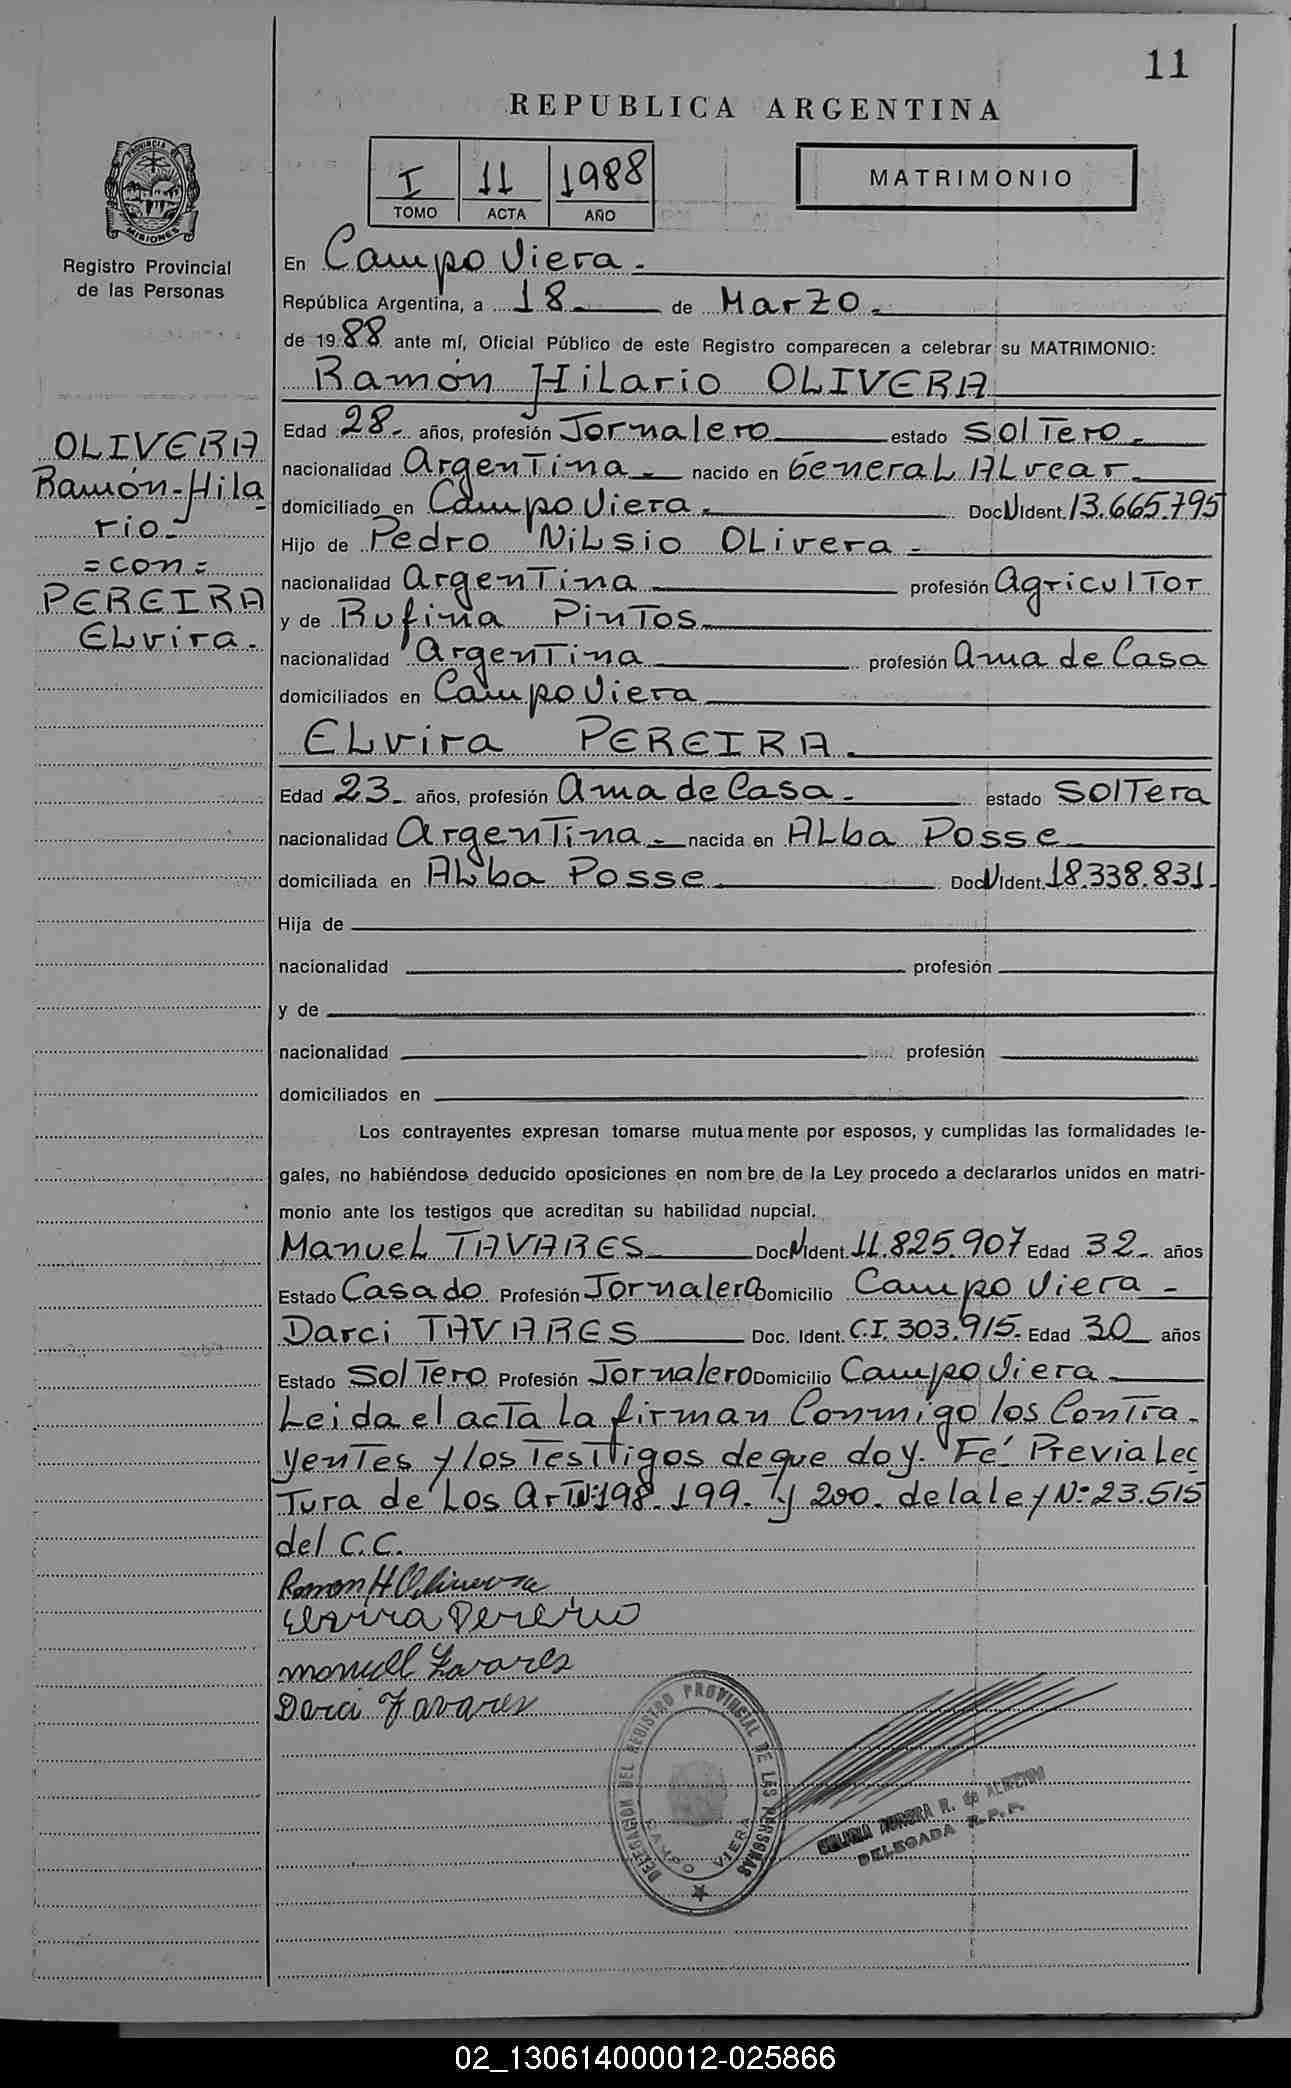 11
REPUBLICA ARGENTINA
PROVINCIA DE
MISIONES
Registro Provincial
de las Personas
I 11 1988
TOMO ACTA AÑO
MATRIMONIO
En Campo Viera.
República Argentina, a 18 de Marzo.
de 1988 ante mí, Oficial Público de este Registro comparecen a celebrar su MATRIMONIO:
Ramón Hilario OLIVERA
OLIVERA
Ramón-Hila
rio-
=con=
PEREIRA
ELvira.
Edad 28- años, profesión Jornalero estado SolTero.
nacionalidad ArgenTina. nacido en General ALvear
domiciliado en Campo Viera. Doc N Ident. 13.665.795
Hijo de Pedro NiLsio OLivera-
nacionalidad ArgenTina profesión AgriculTor
y de Rufina PinTos
nacionalidad ArgenTina profesión Ama de Casa
domiciliados en Campo Viera
ELvira PEREIRA.
Edad 23- años, profesión Ama de Casa. estado SolTera
nacionalidad ArgenTina. nacida en ALba Posse
domiciliada en ALba Posse Doc N Ident. 18.338.831.
Hija de
nacionalidad profesión
y de
nacionalidad profesión
domiciliados en
Los contrayentes expresan tomarse mutuamente por esposos, y cumplidas las formalidades le-
gales, no habiéndose deducido oposiciones en nombre de la Ley procedo a declararlos unidos en matri-
monio ante los testigos que acreditan su habilidad nupcial.
ManueL TAVARES Doc N Ident. 11.825.907 Edad 32- años
Estado Casado Profesión Jornalero Domicilio Campo Viera-
Darci TAVARES Doc. Ident. C.I. 303.915- Edad 30 años
Estado SolTero Profesión Jornalero Domicilio Campo Viera
Leida el acTa La firman Conmigo los ConTra-
yenTes y los TesTigos de que doy. Fé Previa Lec
Tura de Los ArT Nº 198. 199. y 200. de la ley Nº 23.515
del C.C.
Ramon H Olivera
Elvira Pereira
Manuel Tavares
Darci Tavares
DELEGACION DEL REGISTRO PROVINCIAL DE LAS PERSONAS
CAMPO VIERA
R. de
DELEGADA R.P.P.
02_130614000012-025866